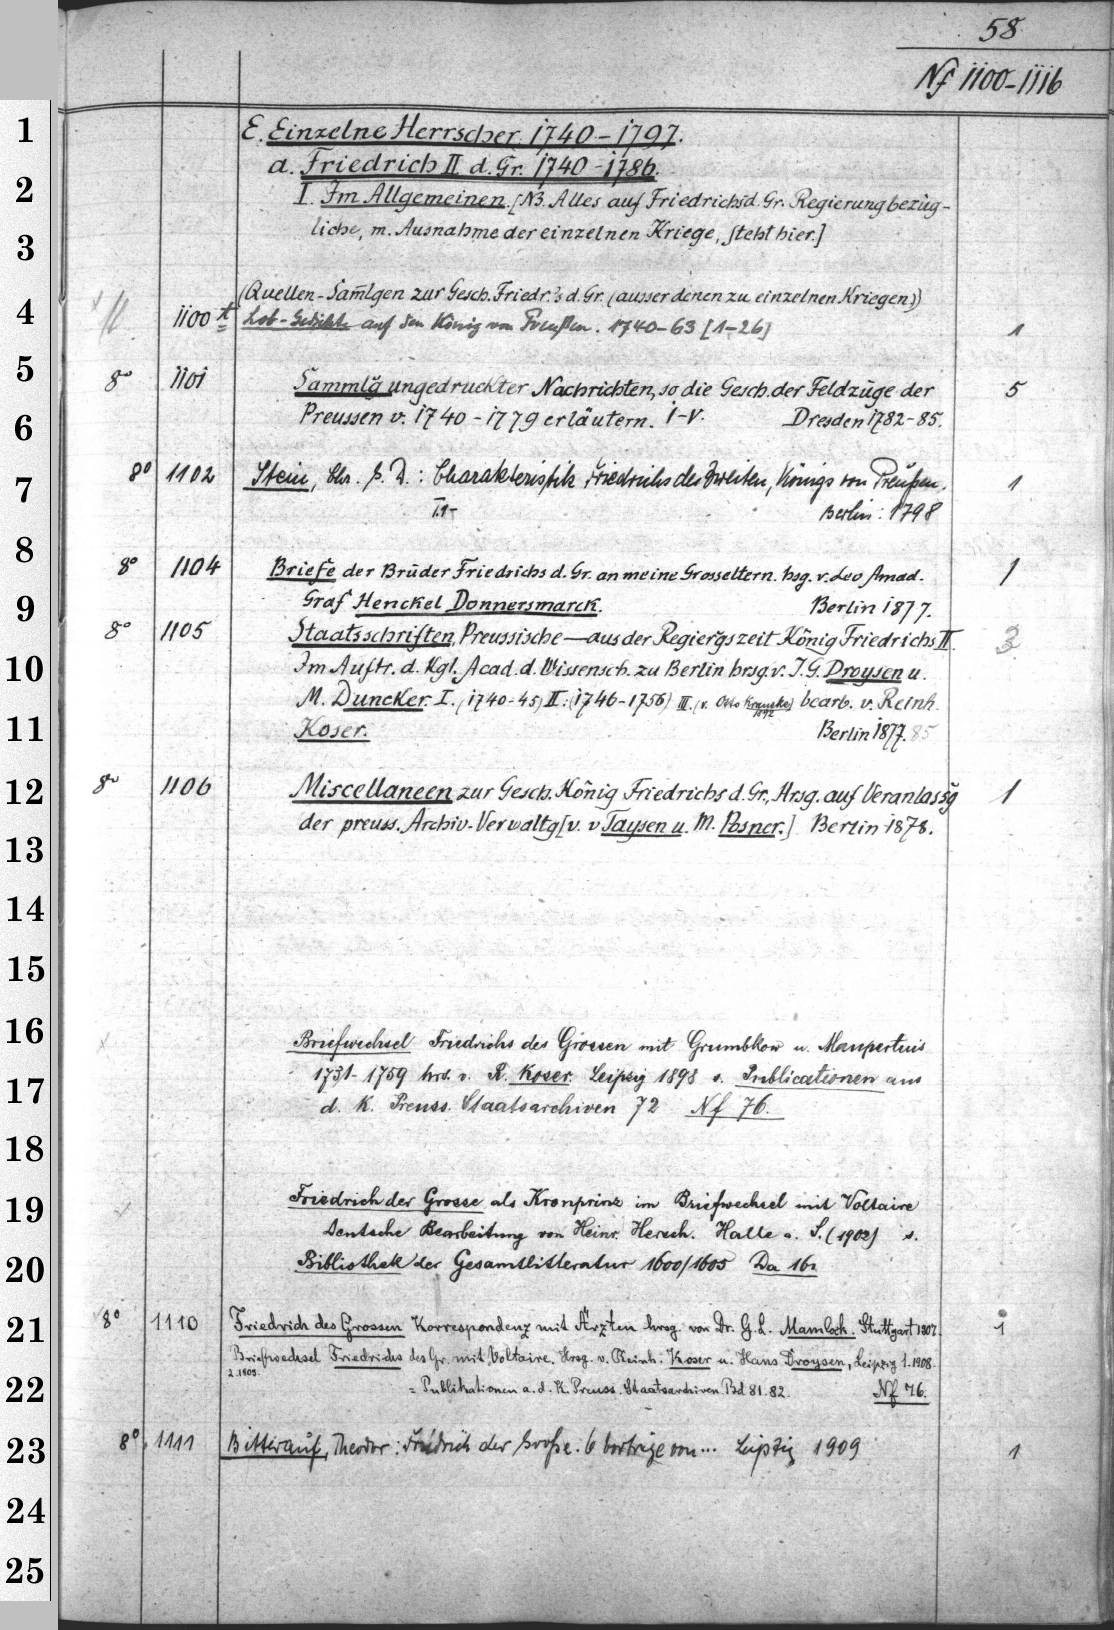 58
Nf 1100-1116
1
E. Einzelne Herrscher. 1740-1797.
a. Friedrich II d. Gr. 1740-1786.
2
I. Im Allgemeinen. [NB. Alles auf Friedrichs d. Gr. Regierung bezüg-
3
liche, m. Ausnahme der einzelnen Kriege, steht hier.]
(Quellen-Sam̄lgen zur Gesch. Friedr.'s d. Gr. (ausser denen zu einzelnen Kriegen))
4
1100 Lob-Gedichte auf den König von Preußen. 1740-63 [1-26] 1
5
8° 1101 Sammlg̃ ungedruckter Nachrichten, so die Gesch. der Feldzüge der 5
6
Preussen v. 1740-1779 erläutern. I-V. Dresden 1782-85.
7
8° 1102 Stein, Chr. G. D.: Charakteristik Friedrichs des Zweiten, Königs von Preußen. 1
T.1- Berlin: 1798
8
8° 1104 Briefe der Brüder Friedrichs d. Gr. an meine Grosseltern. hsg. v. Leo Amad. 1
9
Graf Henckel Donnersmarck. Berlin 1877.
8° 1105 Staatsschriften, Preussische — aus der Regierg̃szeit König Friedrichs II. 3
10
Im Auftr. d. Kgl. Acad. d. Wissensch. zu Berlin hrsg. v. J. G. Droysen u.
M. Duncker. I. (1740-45) II: (1746-1756) III. (v. Otto Krauske) bearb. v. Reinh.
1892
11
Koser. Berlin 1877.85
12
8° 1106 Miscellaneen zur Gesch. König Friedrichs d. Gr., Hrsg. auf Veranlassg̃ 1
der preuss. Archiv-Verwaltg [v. v Taysen u. M. Posner.] Berlin 1878.
13
14
15
16
Briefwechsel Friedrichs des Grossen mit Grumbkow u. Maupertuis
17
1731-1759 hrs. v. R. Koser. Leipzig 1898 s. Publicationen aus
d. K. Preuss. Staatsarchiven 72 Nf 76.
18
19
Friedrich der Grosse als Kronprinz im Briefwechsel mit Voltaire
Deutsche Bearbeitung von Heinr. Hersch. Halle a. S. (1902) s.
20
Bibliothek der Gesamtlitteratur 1600/1605 Da 16
21
8° 1110 Friedrich des Grossen Korrespondenz mit Ärzten hrsg. von Dr. G. L. Mamlock. Stuttgart 1907. 1
Briefwechsel Friedrichs des Gr. mit Voltaire. Hrsg. v. Reinh. Koser u. Hans Droysen, Leipzig 1. 1908.
2. 1909.
22
= Publikationen a. d. K. Preuss. Staatsarchiven. Bd 81. 82. Nf 76.
23
8° 1111 Bitterauf, Theodor: Friedrich der Große. 6 Vorträge von... Leipzig 1909 1
24
25